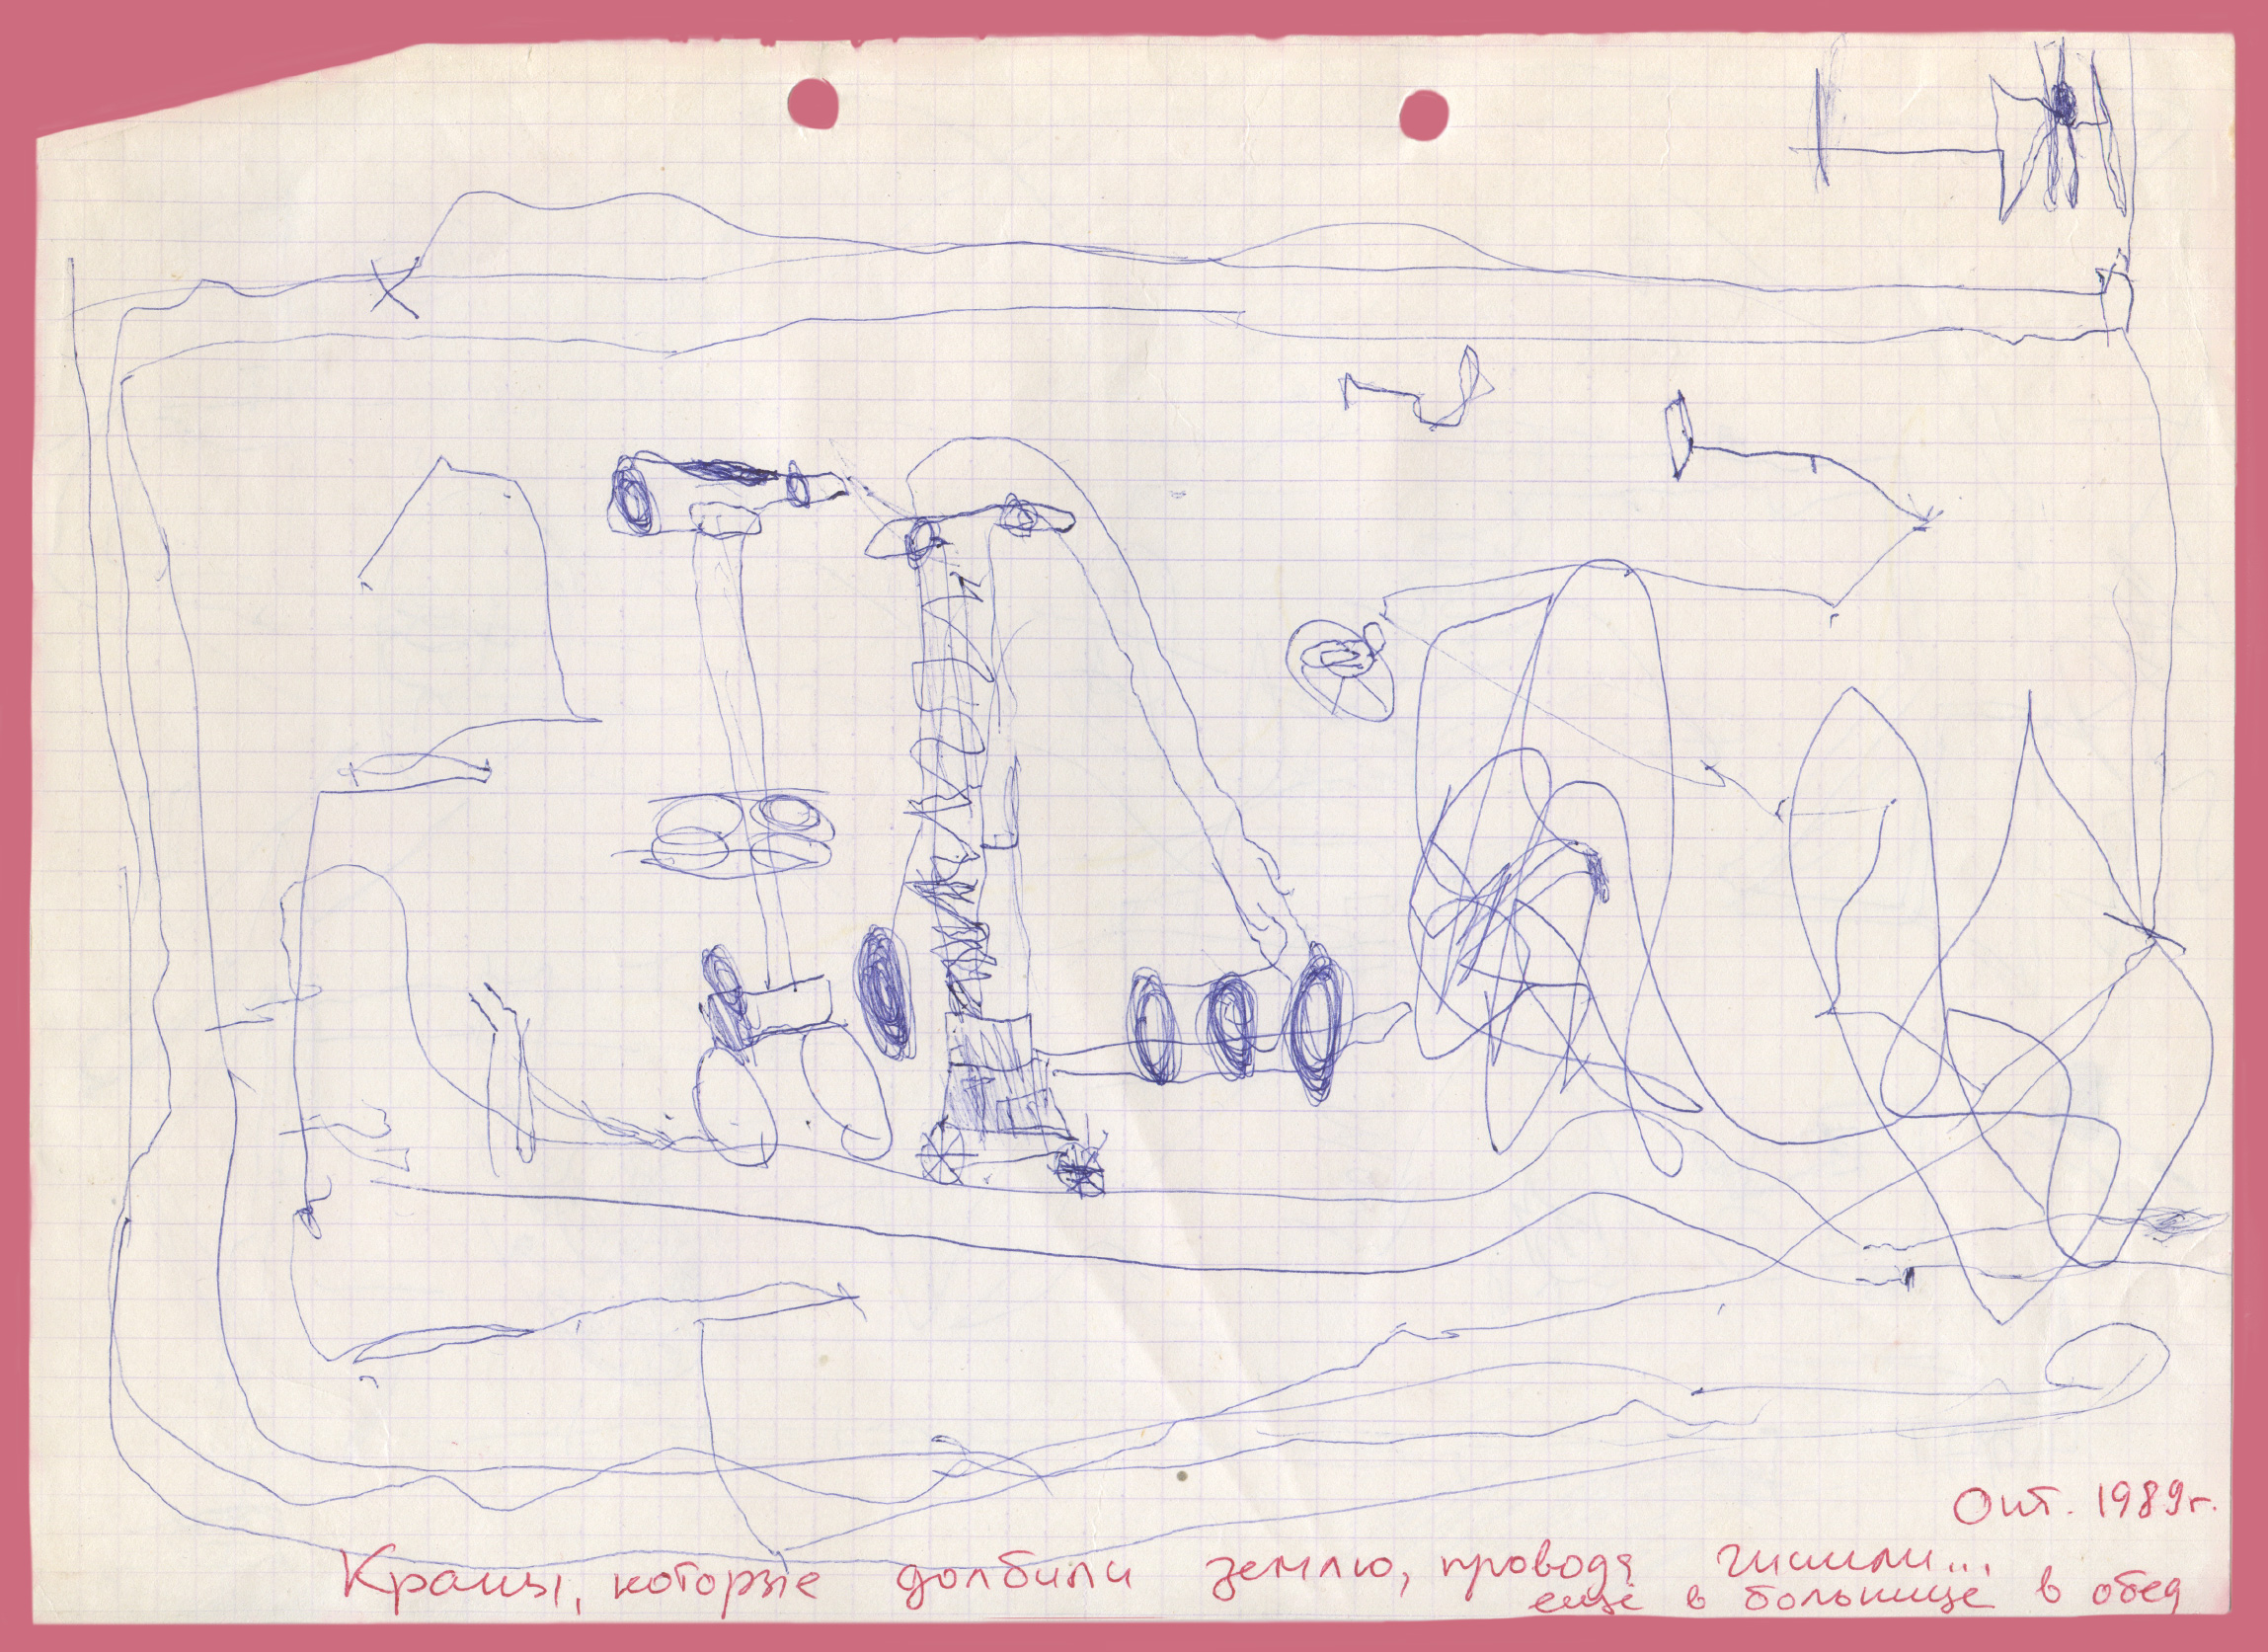 Окт. 1989г.
Краны, которые долбили землю, провода чинили...
ещё в больнице в обед